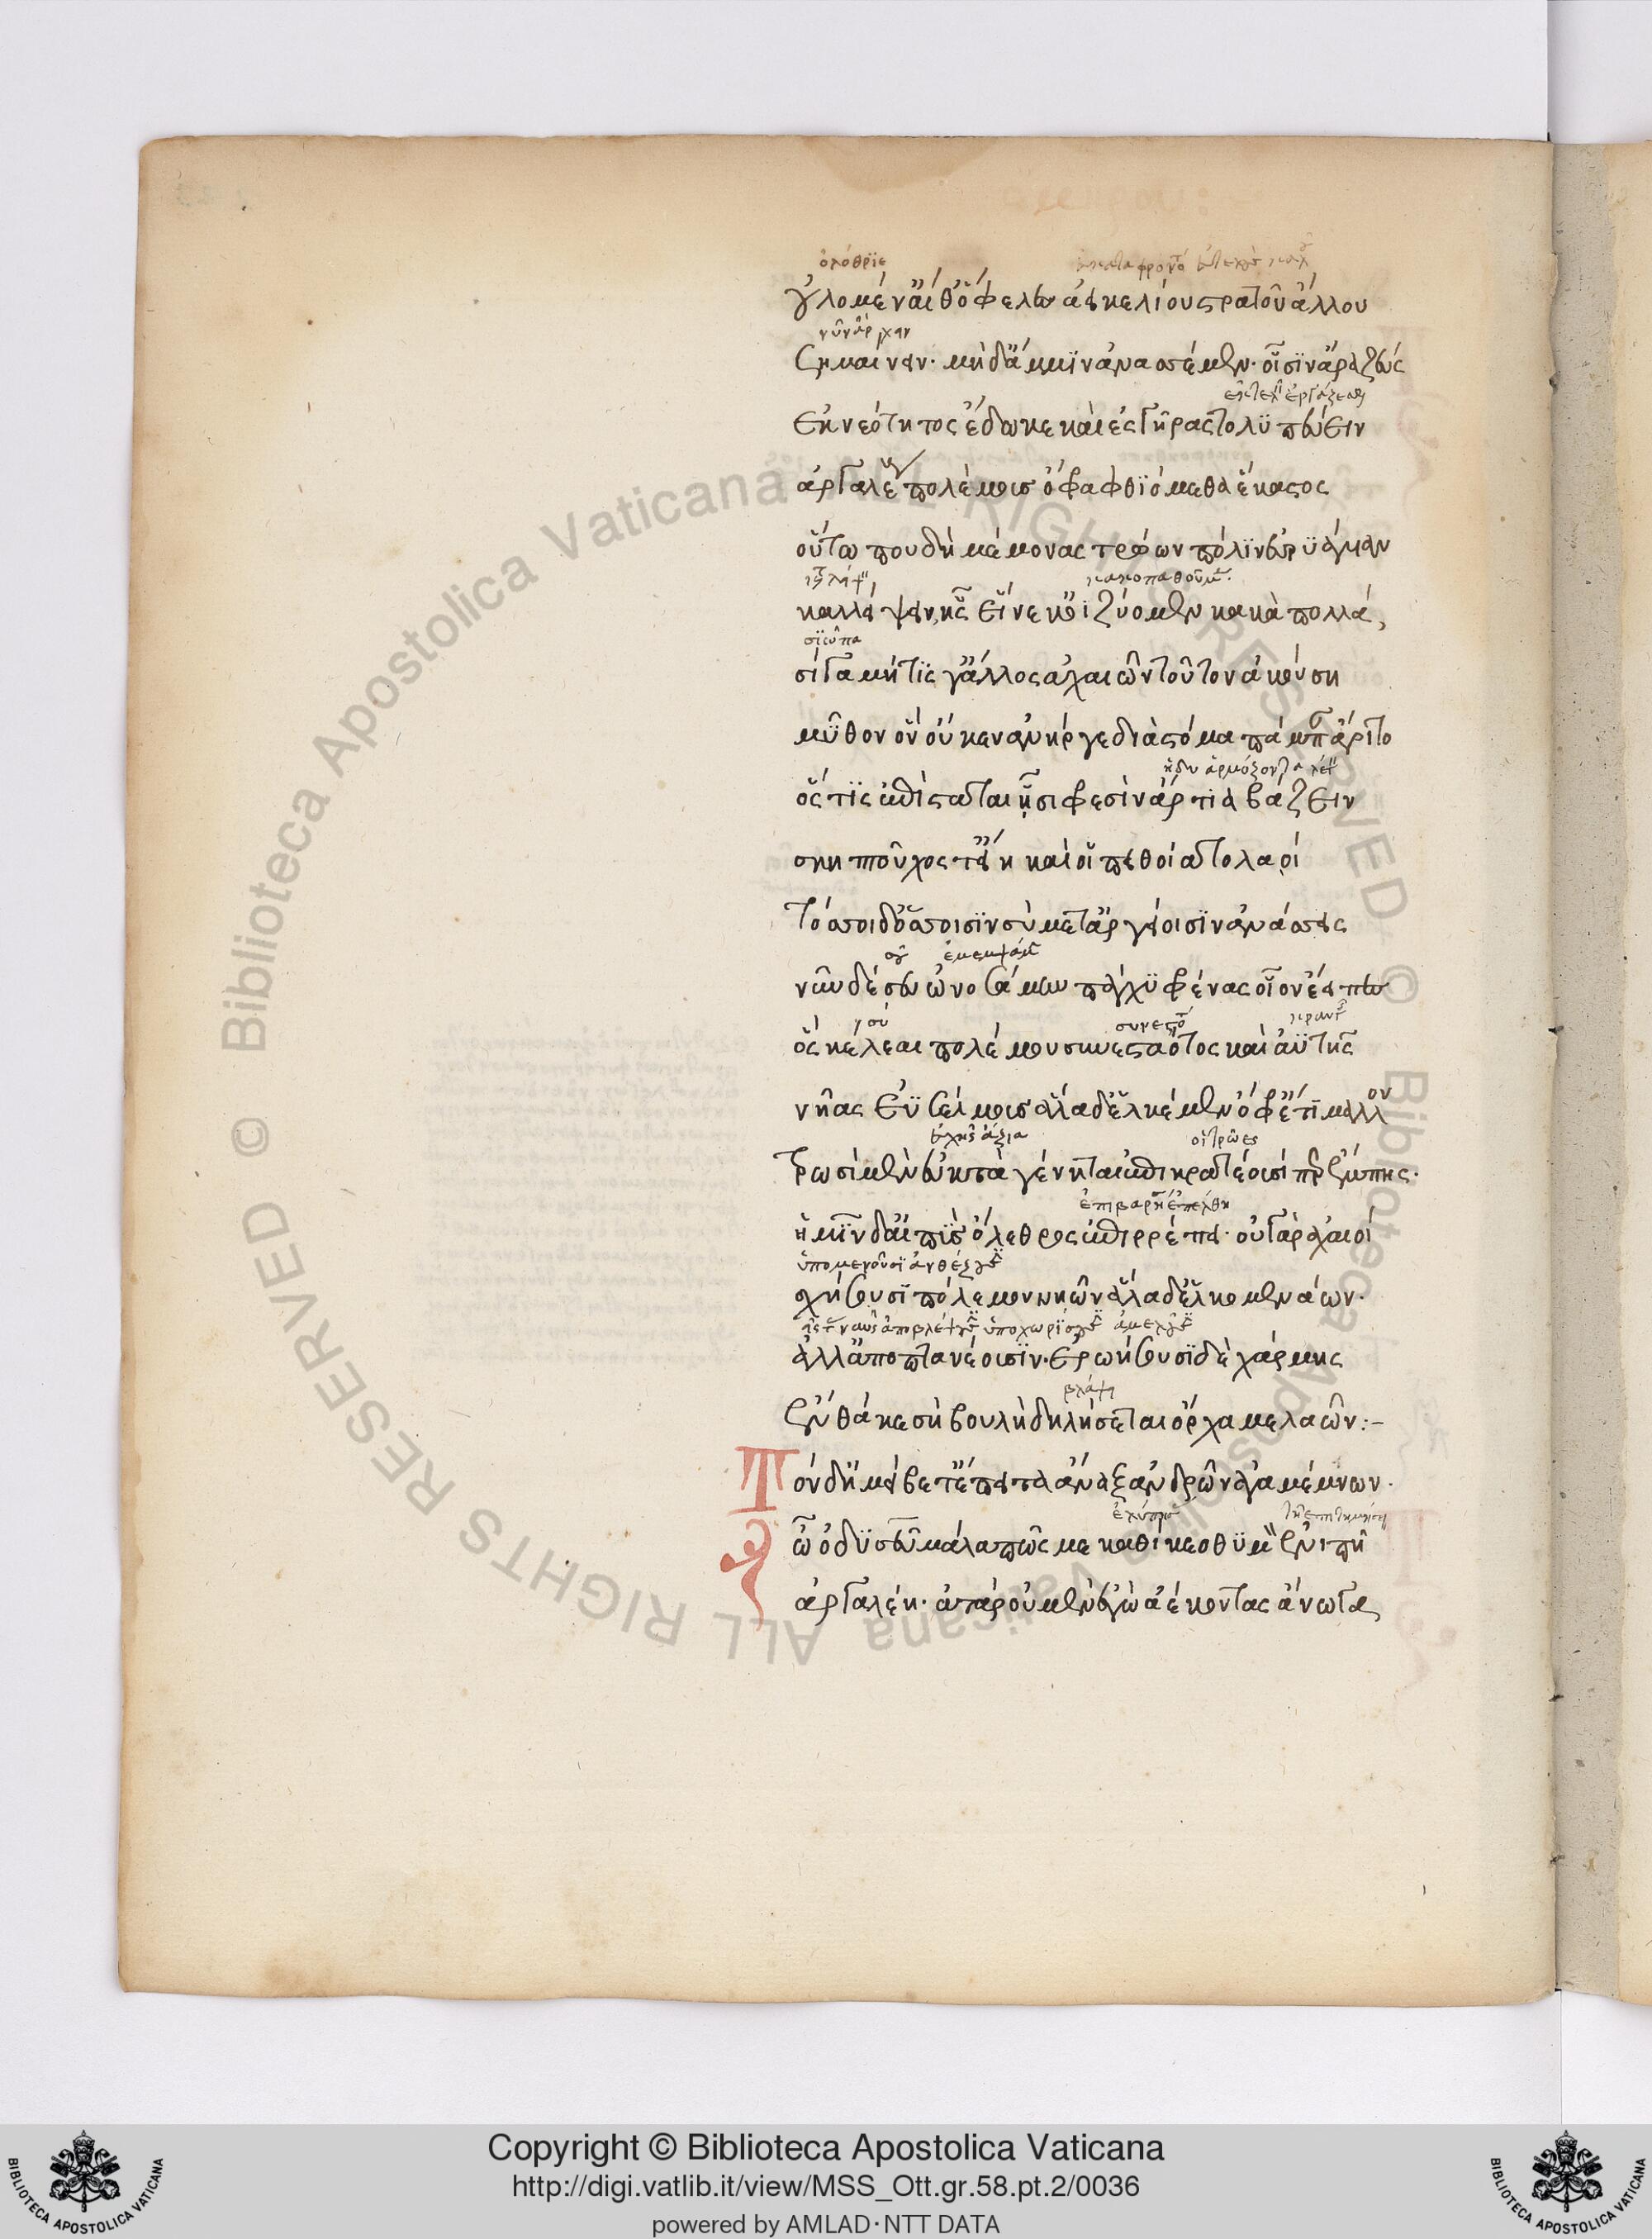 ὀλόθριε
οὐλόμεν αἴθ' ὤφελλες ἀεικελίου στρατοῦ ἄλλου
σημαίνειν· μὴ δ' ἄμμιν ἀνασσέμεν· οἷσιν ἄρα ζεὺς
ἐκ νεότητος ἔδωκε καὶ ἐς γῆρας τολυπεύειν
ἀργαλέους πολέμους ὄφρα φθιόμεθα ἕκαστος
οὕτω που δὴ μέμονας τρώων πόλιν εὐρυάγυιαν
κακοπαθοῦμεν
καλλείψειν, ἧς εἵνεκ' ὀϊζύομεν κακὰ πολλά,
σιώπα
σίγα μήτις τ' ἄλλος ἀχαιῶν τοῦτον ἀκούση
μῦθον ὃν οὔ κεν ἀνήρ γε διὰ στόμα πάμπαν ἄροιτο
ὅς τις ἐπίσταται ᾗσι φρεσὶν ἄρτια βάζειν
σκηπτοῦχος τ' εἴη καὶ οἱ πειθοίατο λαοί
τόσσοιδ' ὅσσοισιν σὺ μετ' ἀργείοισιν ἀνάσσεις
νῦν δέ σευ ὠνοσάμην πάγχυ φρένας οἷον ἔειπες
ὃς κέλεαι πολέμου συνεσταότος καὶ ἀϋτῆς
νῆας ἐϋσέλμους ἅλα δ' ἑλκέμεν ὄφρ' ἔτι μᾶλλον
οἱ τρῶες
τρωσὶ μὲν εὐκτὰ γένηται ἐπικρατέουσί περ ἔμπης·
ἡμῖν δ' αἰπὺς ὄλεθρος ἐπιρρέπει· οὐ γὰρ ἀχαιοὶ
σχήσουσι πόλεμον νηῶν ἅλα δ' ἑλκομενάων·
ἀλλ' ἀποπτανέουσιν· ἐρωήσουσι δὲ χάρμης
βλάψη
ἔνθά κε σὴ βουλὴ δηλήσεται ὄρχαμε λαῶν:-
Τὸν δ' ἠμείβετ' ἔπειτα ἄναξ ἀνδρῶν ἀγαμέμνων·
ὦ ὀδυσεῦ μάλα πῶς με καθίκεο θυμὸν ἐνιπῆ
ἀργαλέη· ἀτὰρ οὐ μὲν ἐγὼ ἀέκοντας ἄνωγα
Copyright © Biblioteca Apostolica Vaticana
http://digi.vatlib.it/view/MSS_Ott.gr.58.pt.2/0036
powered by AMLAD·NTT DATA
BIBLIOTECA APOSTOLICA VATICANA
BIBLIOTECA APOSTOLICA VATICANA
© Biblioteca Apostolica Vaticana ALL RIGHTS RESERVED
© Biblioteca Apostolica Vaticana ALL RIGHTS RESERVED